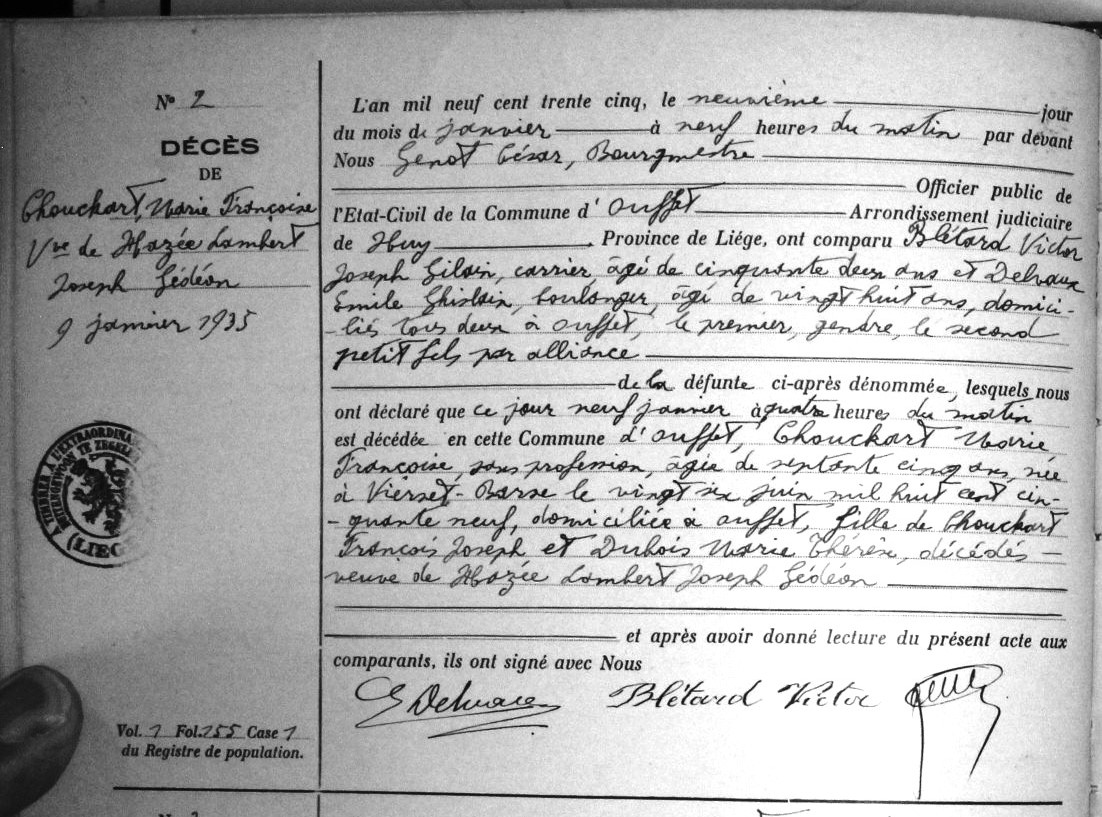 N° 2
DÉCÈS
DE
Chouckart, Marie Françoise
Vve de Hazée Lambert
Joseph Gédéon
9 janvier 1935
(LIEG
Vol. 1 Fol. 155 Case 1
du Registre de population.
L'an mil neuf cent trente cinq, le neuvième jour
du mois de janvier à neuf heures du matin par devant
Nous Genot César, Bourgmestre
Officier public de
l'Etat-Civil de la Commune d'Ouffet Arrondissement judiciaire
de Huy, Province de Liége, ont comparu Blétard Victor
Joseph Gilain, carrier, âgé de cinquante deux ans et Delvaux
Emile Ghislain, boulanger, âgé de vingt huit ans, domici-
-liés tous deux à Ouffet, le premier, gendre, le second
petit fils par alliance
de la défunte ci-après dénommée, lesquels nous
ont déclaré que ce jour neuf janvier à quatre heures du matin
est décédée en cette Commune d'Ouffet, Chouckart Marie
Françoise, sans profession, âgée de septante cinq ans, née
à Vierset-Barse le vingt six juin mil huit cent cin-
-quante neuf, domiciliée à Ouffet, fille de Chouckart
François Joseph et Dubois Marie Thérèse, décédés -
veuve de Hazée Lambert Joseph Gédéon
et après avoir donné lecture du présent acte aux
comparants, ils ont signé avec Nous
E Delvaux Blétard Victor